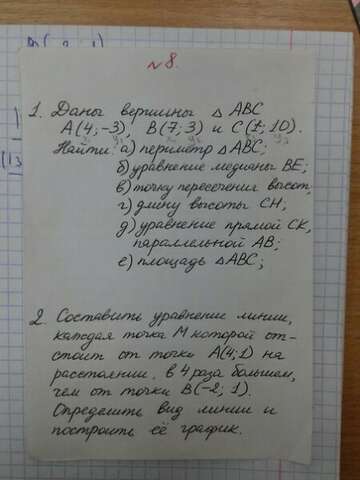 №8.
1. Даны вершины △ABC
A(4;-3), B(7;3) и C(1;10).
Найти: а) периметр △ABC;
б) уравнение медианы BE;
в) точку пересечения высот;
г) длину высоты CH;
д) уравнение прямой CK,
параллельной AB;
е) площадь △ABC;
2. Составить уравнение линии,
каждая точка M которой от-
стоит от точки A(4;1) на
расстоянии, в 4 раза большем,
чем от точки B(-2; 1).
Определить вид линии и
построить её график.